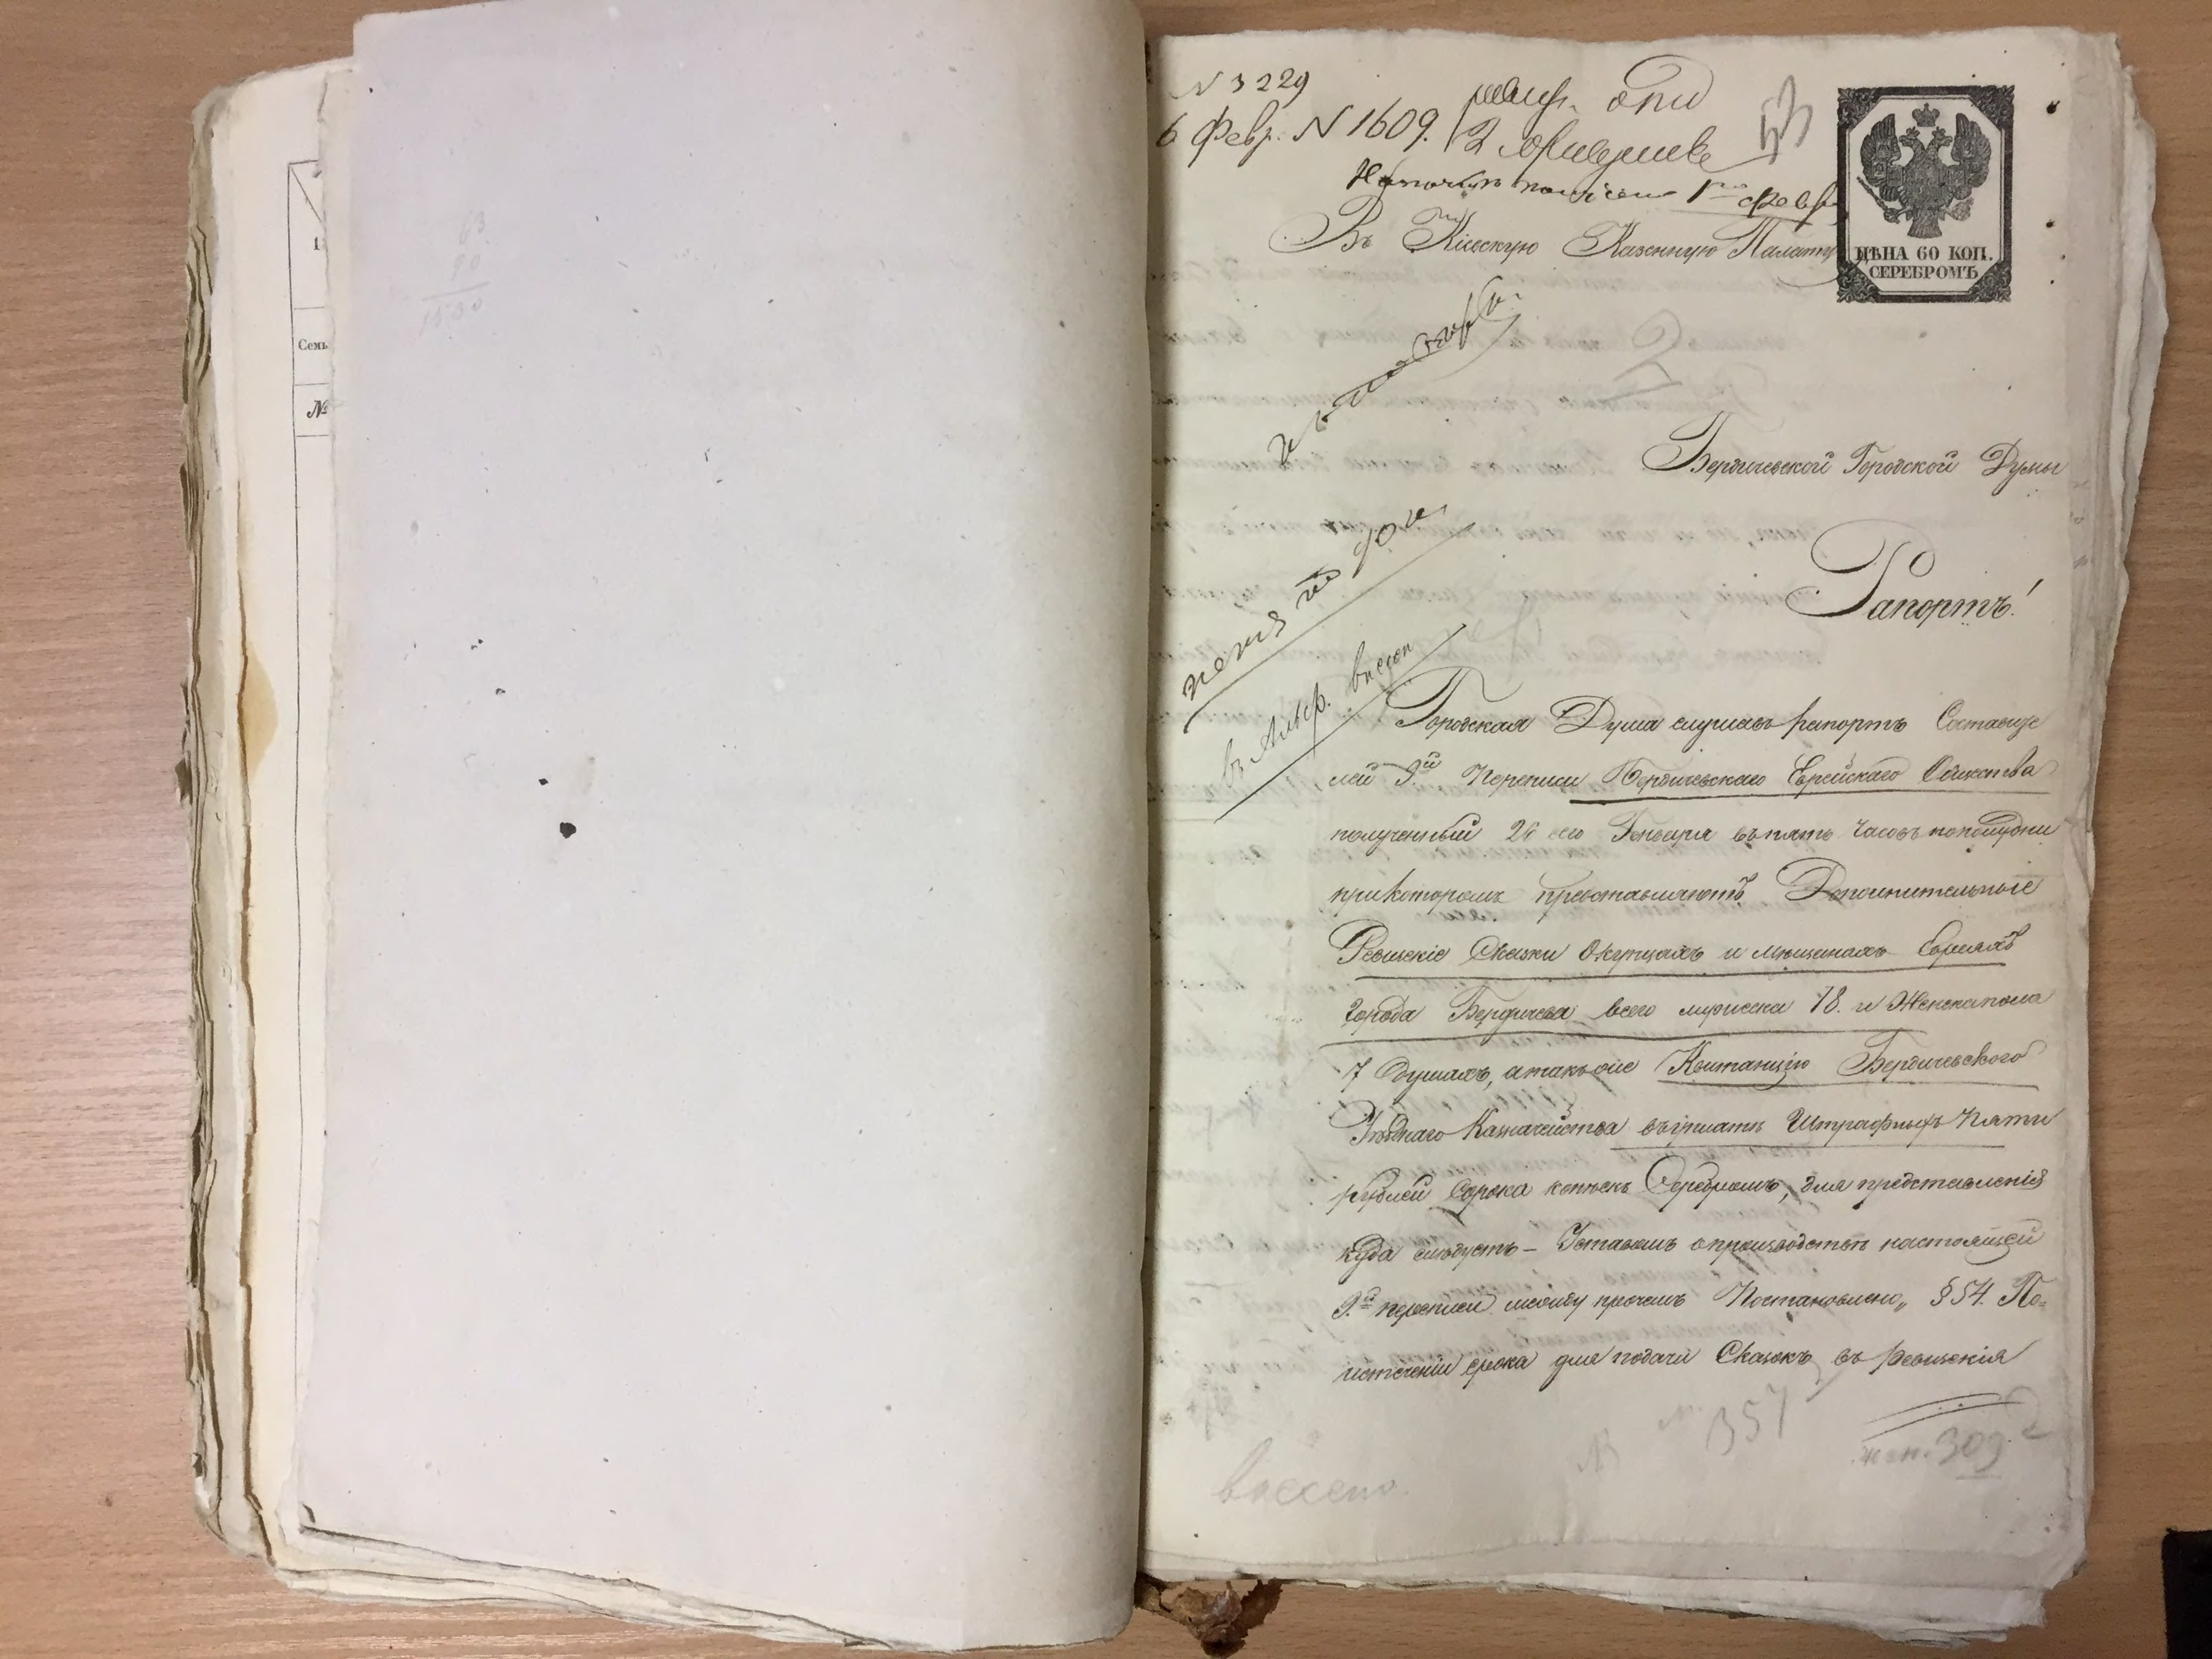 N 3229
6 Февр. N 1609.
Въ Кіевскую Казенную Палату
ЦѢНА 60 КОП.
СЕРЕБРОМЪ
Бердичевской Городской Думы
Рапортъ!
въ Алф. внесен
Городская Дума слушавъ рапортъ Составите
лей 9й Переписи Бердичевскаго Еврейскаго Общества
полученный 24 сего Генваря въ пять часовъ пополудни
при которомъ представляютъ Дополнительные
Ревизскіе Сказки О купцахъ и мещанахъ Евреяхъ
города Бердичева всего мужеска 18. и Женска пола
7 душахъ, а также Квитанцію Бердичевского
Уѣзднаго Казначейства въ уплатѣ Штрафныхъ Пяти
рублей Сорока копѣекъ Серебромъ, для представленія
куда слѣдуетъ – Уставомъ о производствѣ настоящей
9й переписи между прочемъ Постановлено„ § 54. По=
истеченіи срока для подачи Сказокъ въ ревизскія
357
жен. 309
внесено
Семь
№
63